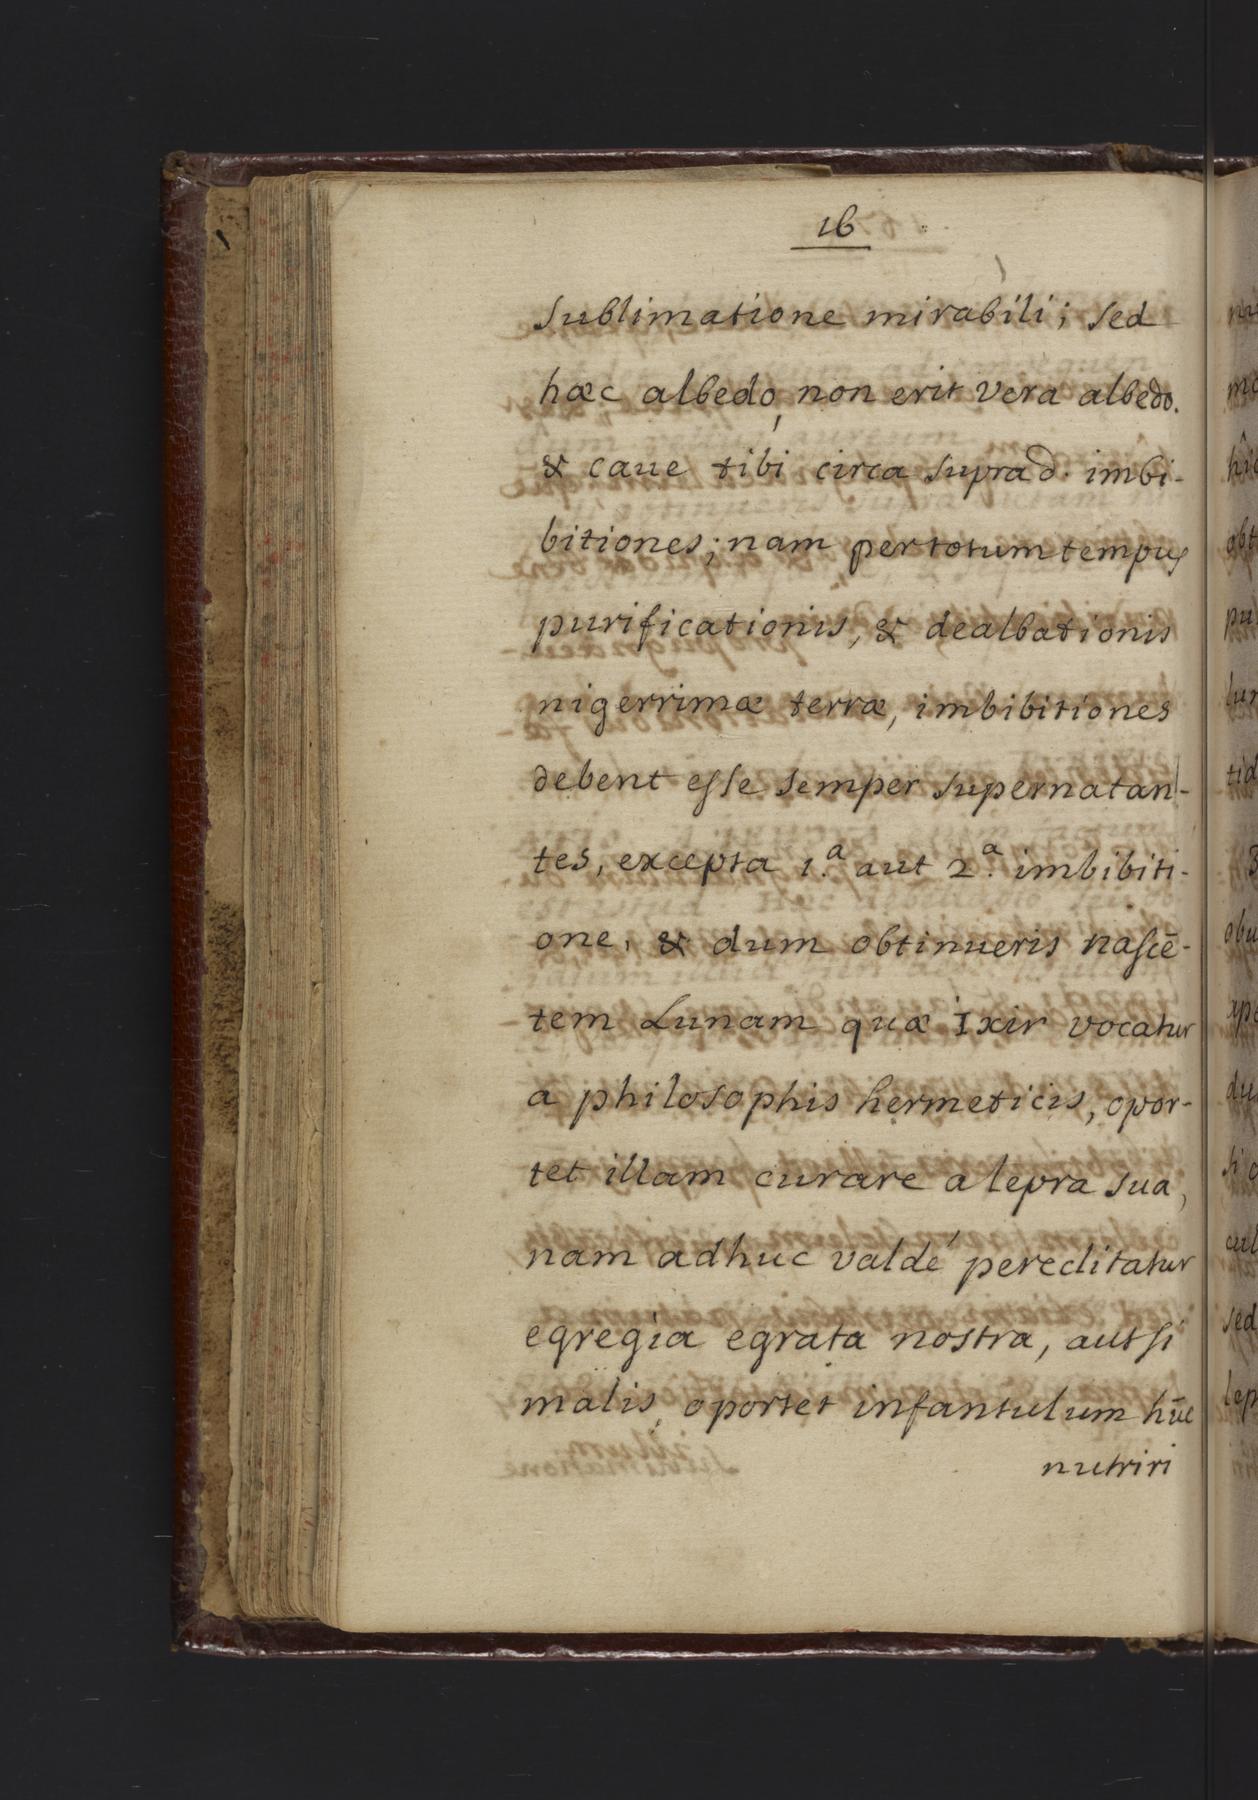 16
sublimatione mirabili; sed
hæc albedo, non erit vera albedo.
& caue tibi circa suprad. imbi-
bitiones; nam per totum tempus
purificationis, & dealbationis
nigerrimæ terræ, imbibitiones
debent esse semper supernatan-
tes, excepta 1.ª aut 2.ª imbibiti-
one, & dum obtinueris nascē-
tem Lunam quæ Ixir vocatur
a philosophis hermeticis, opor-
tet illam curare a lepra sua,
nam adhuc valdé pereclitatur
egregia egrata nostra, aut si
malis, oportet infantulum hūc
nutriri